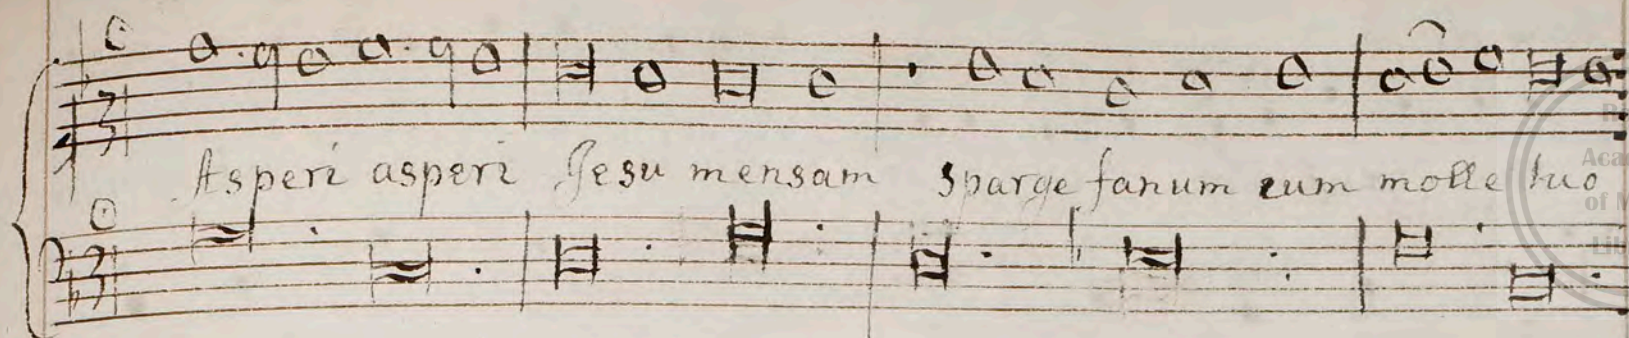 Asperi asperi Jesu mensam sparge fanum cum molle tuo